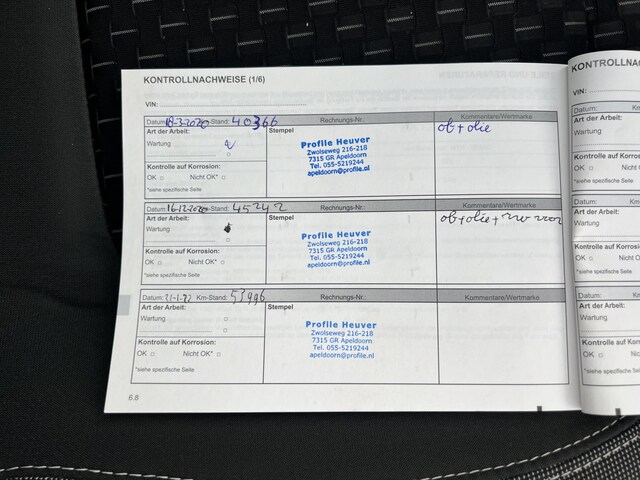 KONTROLLNACHWEISE (1/6)
VIN:
Datum: 18-3-2020 Km-Stand: 40366 Rechnungs-Nr.: Kommentare/Wertmarke
Art der Arbeit: Stempel ob + olie
Wartung
Profile Heuver
Zwolseweg 216-218
7315 GR Apeldoorn
Tel. 055-5219244
apeldoorn@profile.nl
Kontrolle auf Korrosion:
OK Nicht OK*
*siehe spezifische Seite
Datum: 16-12-2020 Km-Stand: 45242 Rechnungs-Nr.: Kommentare/Wertmarke
Art der Arbeit: Stempel ob + olie +
Wartung
Profile Heuver
Zwolseweg 216-218
7315 GR Apeldoorn
Tel. 055-5219244
apeldoorn@profile.nl
Kontrolle auf Korrosion:
OK Nicht OK*
*siehe spezifische Seite
Datum: Km-Stand: 53996 Rechnungs-Nr.: Kommentare/Wertmarke
Art der Arbeit: Stempel
Wartung
Profile Heuver
Zwolseweg 216-218
7315 GR Apeldoorn
Tel. 055-5219244
apeldoorn@profile.nl
Kontrolle auf Korrosion:
OK Nicht OK*
*siehe spezifische Seite
6.8
KONTROLLNA
VIN:
Datum:
Art der Arbeit:
Wartung
Kontrolle auf
OK
*siehe spezifische
Datum:
Art der Arbeit:
Wartung
Kontrolle auf
OK
*siehe spezifische
Datum:
Art der Arbeit:
Wartung
Kontrolle auf
OK
*siehe spezifische